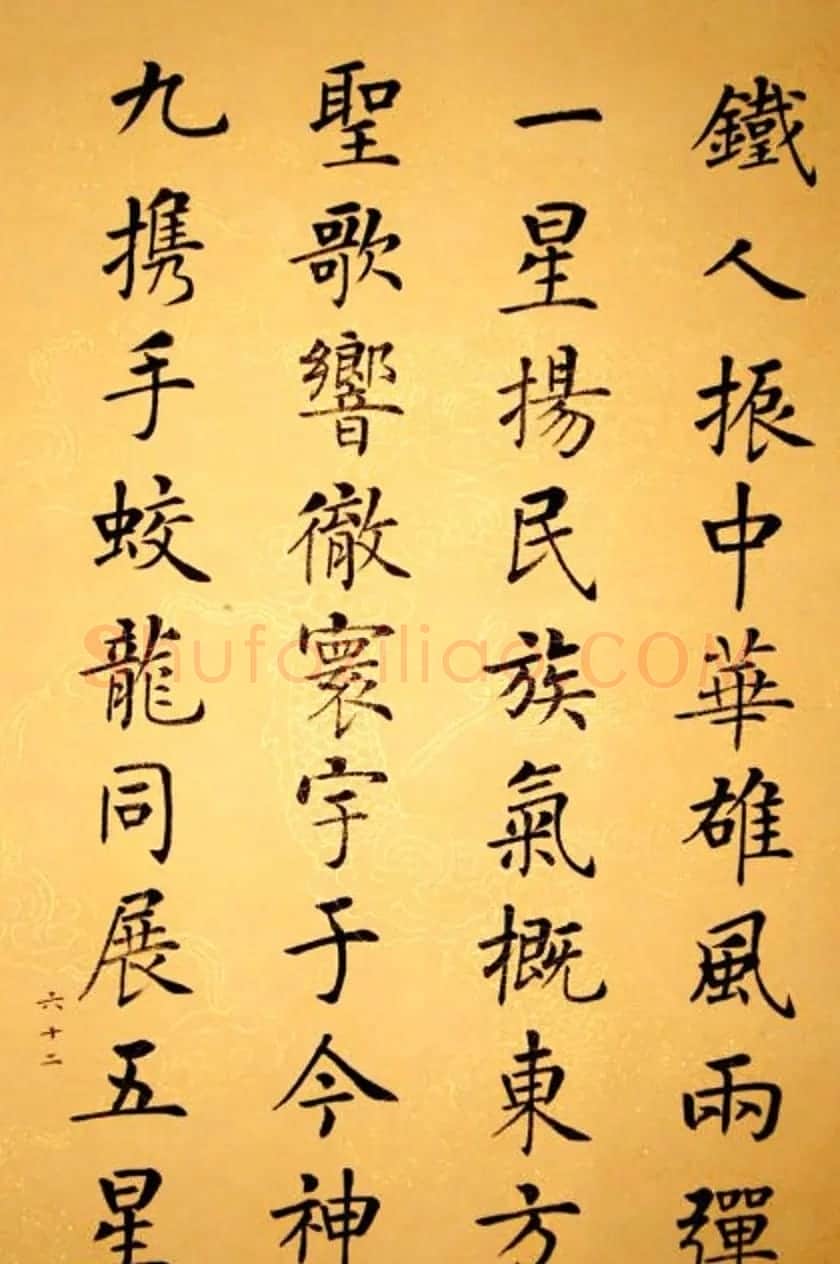 鐵人振中華雄風兩彈
一星揚民族氣概東方
聖歌響徹寰宇于今神
九携手蛟龍同展五星
六十二